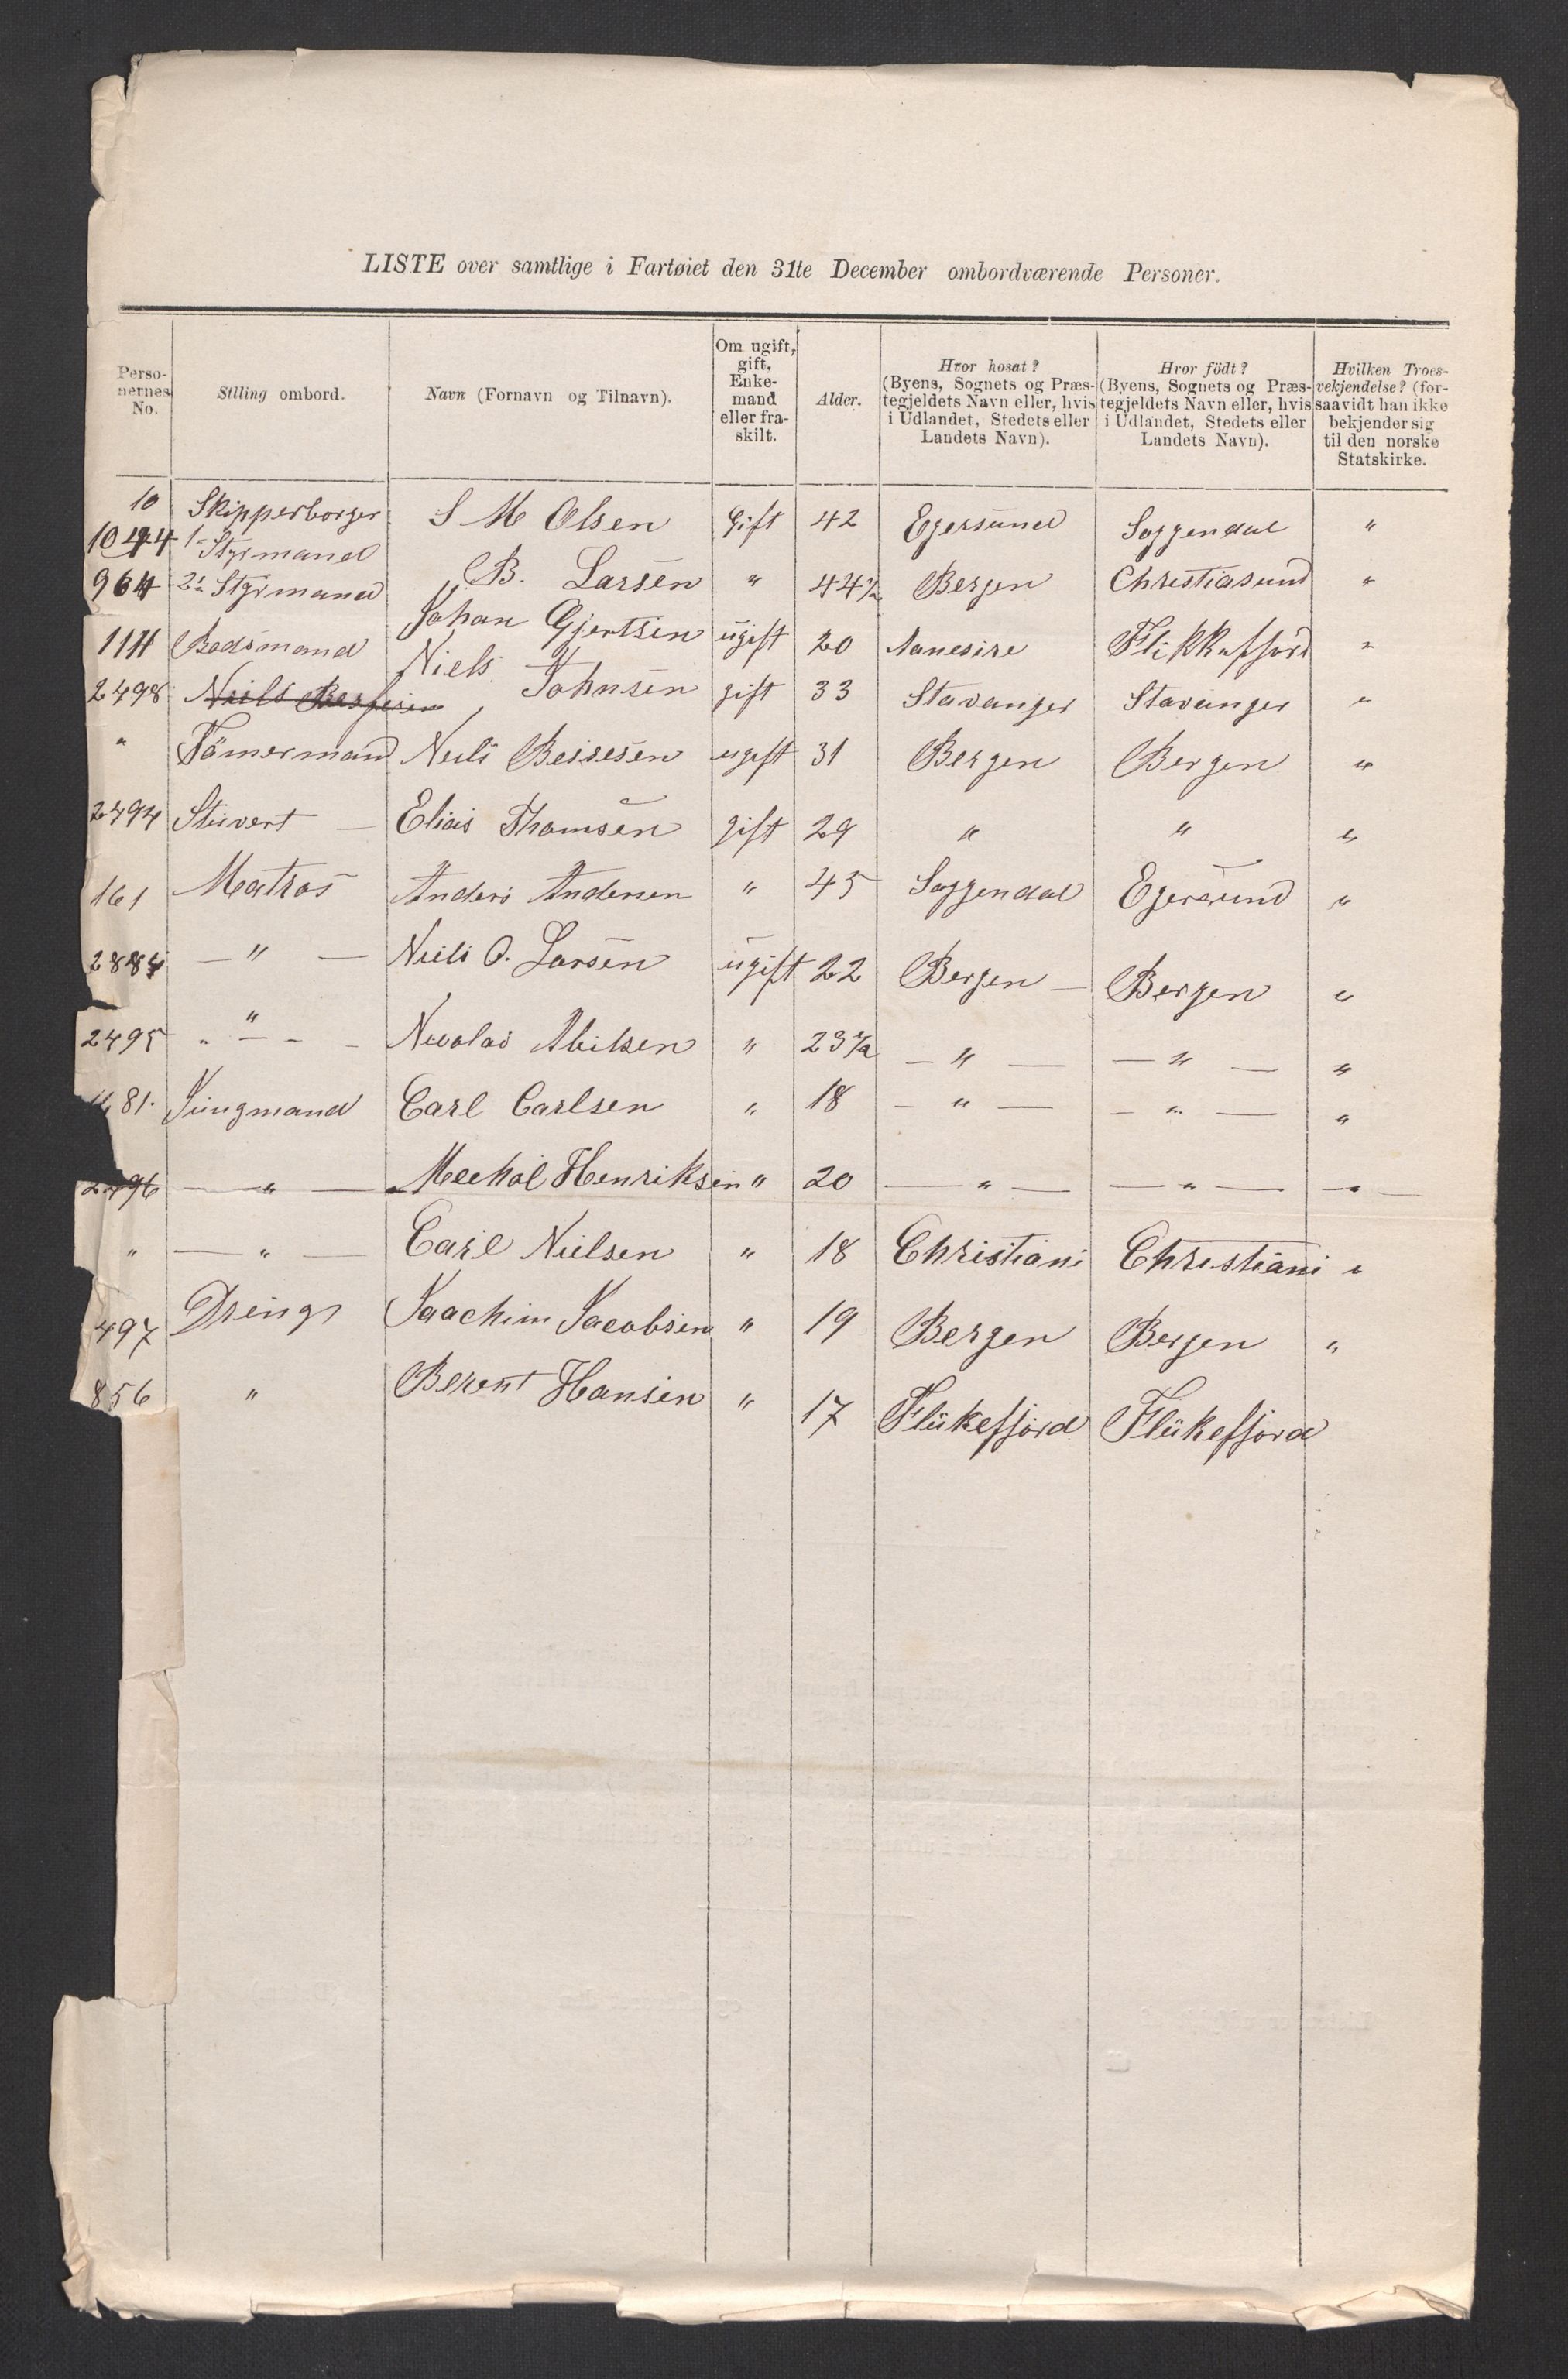 LISTE over samtlige i Fartøiet den 31te December ombordværende Personer.
Personernes No. | Stilling ombord. | Navn (Fornavn og Tilnavn). | Om ugift, gift, Enkemand eller fraskilt. | Alder. | Hvor bosat? (Byens, Sognets og Præstegjeldets Navn eller, hvis i Udlandet, Stedets eller Landets Navn). | Hvor födt? (Byens, Sognets og Præstegjeldets Navn eller, hvis i Udlandet, Stedets eller Landets Navn). | Hvilken Troesbekjendelse? (forsaavidt han ikke bekjender sig til den norske Statskirke.
10 | Skipperborger | S M Olsen | Gift | 42 | Egersund | Soggendal | "
1044 | 1 Styrmand | B. Larsen | " | 44½ | Bergen | Christiasund | "
964 | 2 Styrmand | Johan Gjertsen | ugift | 20 | Aanesire | Flikkefjord | "
1111 | Badsmand | Niels Johnsen | gift | 33 | Stavanger | Stavanger | "
2498
" | Tömermand | Niels Bessesen | ugift | 31 | Bergen | Bergen | "
2494 | Stivert | Elias Thomsen | gift | 29 | " | " | "
161 | Matros | Anders Andersen | " | 45 | Soggendal | Egersund | "
2884 | — " — | Niels O. Larsen | ugift | 22 | Bergen — | Bergen | "
2495 | " | Nicolai | " | 23½ | — " — | — " — | "
81. | Jungmand | Carl Carlsen | " | 18 | — " — | — " — | "
2496 | — " — | Mechal Henriksen | " | 20 | — " — | — " — | — " —
" | — " — | Carl Nielsen | " | 18 | Christiani | Christiani | "
497 | Dreng | Jaachim Jacobsen | " | 19 | Bergen | Bergen | "
856 | " | Berent Hansen | " | 17 | Flükefjord | Flükefjord